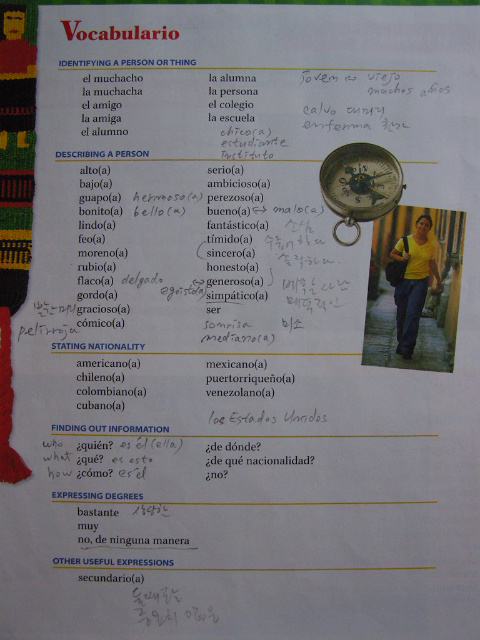 Vocabulario
IDENTIFYING A PERSON OR THING
el muchacho
la muchacha
el amigo
la amiga
el alumno
la alumna
la persona
el colegio
la escuela
chico(a)
estudiante
instituto
joven ↔ viejo
muchos años
calvo 대머리
enferma
DESCRIBING A PERSON
alto(a)
bajo(a)
guapo(a) hermoso(a)
bonito(a) bello(a)
lindo(a)
feo(a)
moreno(a)
rubio(a)
flaco(a) delgado
gordo(a)
gracioso(a)
cómico(a)
pelirroja
serio(a)
ambicioso(a)
perezoso(a)
bueno(a) ↔ malo(a)
fantástico(a)
tímido(a)
sincero(a)
honesto(a)
egoista(a) ↔ generoso(a)
simpático(a)
ser
sonrisa 미소
mediano(a)
STATING NATIONALITY
americano(a)
chileno(a)
colombiano(a)
cubano(a)
mexicano(a)
puertorriqueño(a)
venezolano(a)
los Estados Unidos
FINDING OUT INFORMATION
who ¿quién? es él (ella)
what ¿qué? es esto
how ¿cómo? es él
¿de dónde?
¿de qué nacionalidad?
¿no?
EXPRESSING DEGREES
bastante
muy
no, de ninguna manera
OTHER USEFUL EXPRESSIONS
secundario(a)